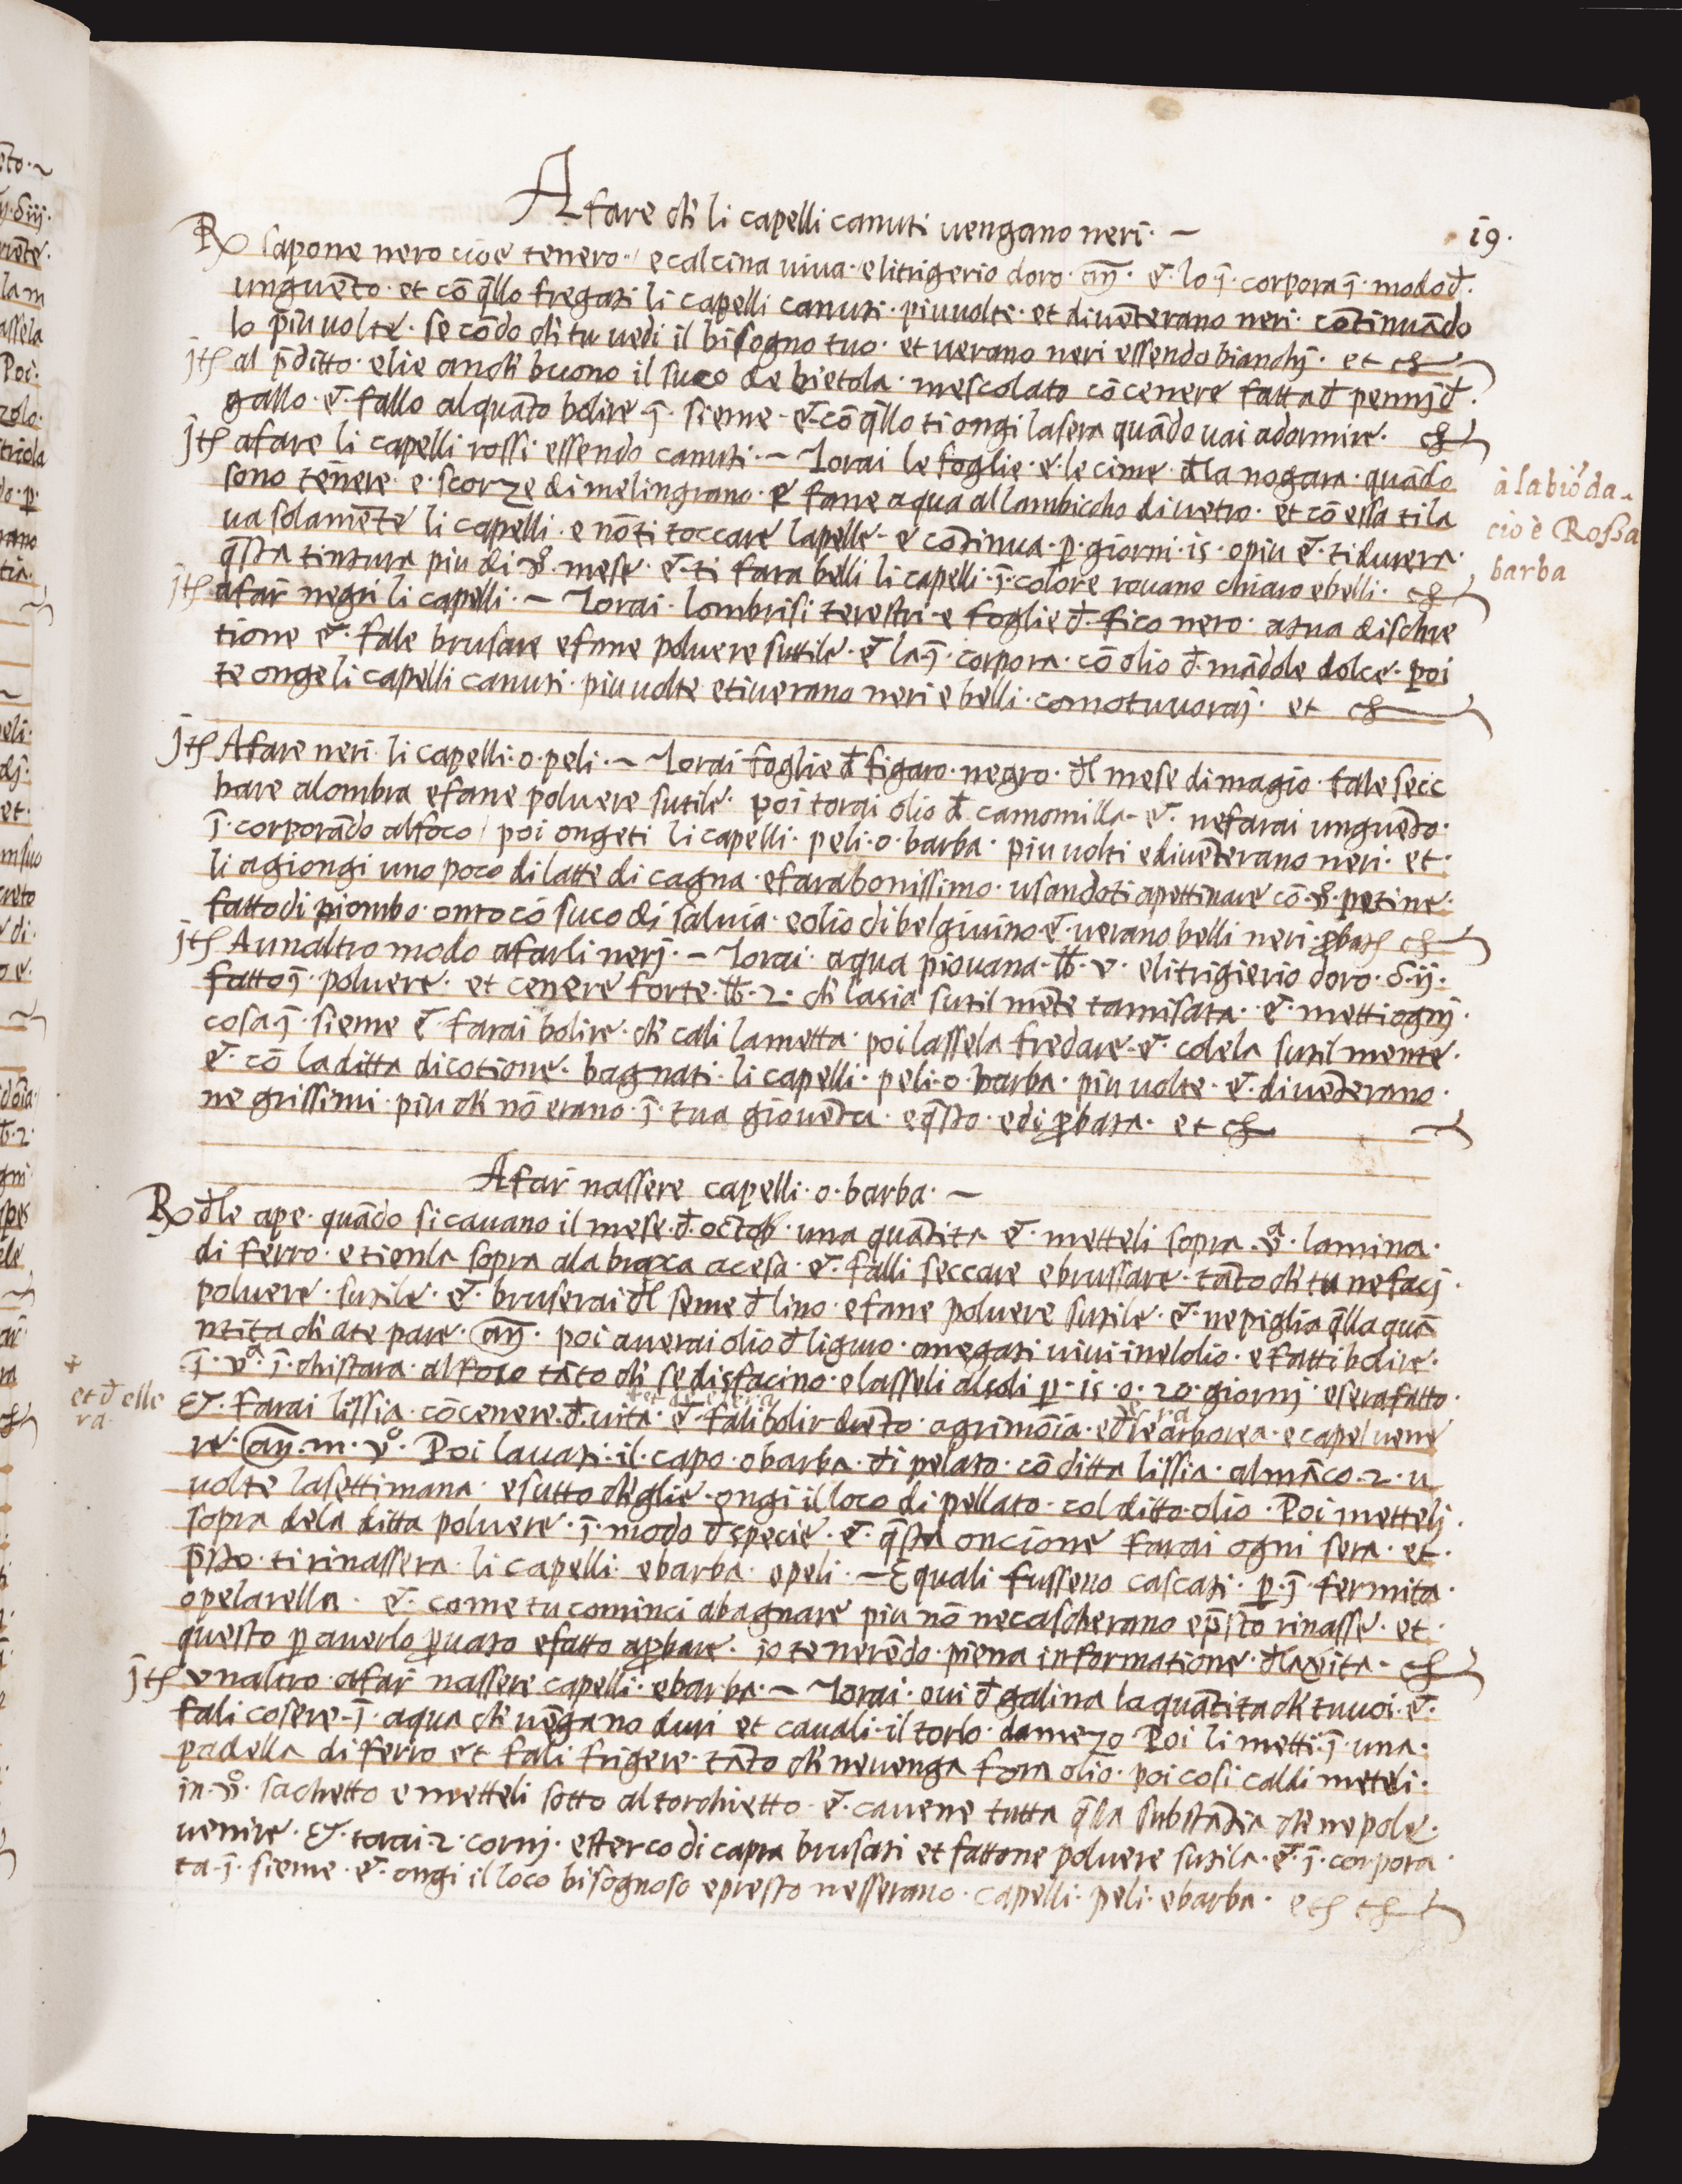 19.
Afare ch̄ li capelli canuti vengano neri. ~
Rx sapone nero cioe tenero. / e calcina viva. e litrigerio doro. añ. et. lo ī. corpora ī. modo đ.
unguēto. et cō q̄llo fregati li capelli canuti. piu volte. et divēterano neri. cōtinuādo
lo piu volte. secōdo ch̄ tu vedi il bisogno tuo. et verano neri essendo bianchj. et cƺ
jtƺ al p̄ditto. elie anch̄ buono il suco de bietola. mescolato cō cenere fatta đ pennj đ.
gallo. et. fallo alquāto bolire ī. sieme. et. cō q̄llo ti ongi la sera quādo vai adormire. cƺ
jtƺ afare li capelli rossi essendo canuti. ~ Torai le foglie. e. le cime. đla nogara. quādo
sono tenere. e. scorze di melingrano. e fane aqua al lambiccho di vetro. et cō essa ti la
va solamēte li capelli. e nō ti toccare la pelle. e cōtinua. p. giorni. is. o piu et. ti durera.
q̄sta tintura piu di ū. mese. et. ti fara belli li capelli. ī. colore rovano chiaro e belli. cƺ
à la biōda ~
cio è Roßa
barba
jtƺ afar negri li capelli. ~ Torai. lombrisi terestri. e foglie đ. fico nero. a tua dischre
tione et. fale brusare e fane polvere suttile. et la ī. corpora. cō olio đ. mādole dolce. poi
te onge li capelli canuti. piu volte e ti verano neri e belli. como tu voraj. et cƺ
jtƺ Afare neri. li capelli. o. peli. ~ Torai foglie đ figaro. negro. đl mese di magio. fale secc
hare alombra e fane polvere sutile. poi torai olio đ camomilla. et. ne farai unguēto.
ī. corporādo al foco / poi ongeti li capelli. peli. o. barba. piu volti e divēterano neri. et.
li agiongi uno poco di latte di cagna. e fara bonissimo. usandoti apettinare cō. ū. petine.
fatto di piombo. onto cō suco di salvia. e olio di belgivino. et. verano belli neri. ꝓbatƺ cƺ
jtƺ Aunaltro modo afarli nerj. ~ Torai. aqua piovana. ℔. v. e litrigierio doro. δ. ij.
fatto ī. polvere. et cenere forte. ℔. 2. ch̄ lasia sutilmēte tamisata. et. metti ognj.
cosa ī. sieme et. farai bolire. ch̄ cali lametta. poi lassela fredare. et. colela sutilmente.
et. cō la ditta dicotione. bagnati. li capelli. peli. o. barba. piu volte. et. divēterano.
negrissimi. piu ch̄ nō erano. ī. tua gioventu. e q̄sto. e di ꝓbata. et cƺ
Afar nassere capelli. o. barba. ~
Rx đle ape. quādo si cavano il mese. đ. octob̄. una quātita et. metteli sopra. vª. lamina.
di ferro. e tienla sopra ala braxa acesa. et. falli seccare e brussare. tāto ch̄ tu ne facj.
polvere. sutile. et. bruserai đl seme đ lino. e fane polvere sutile. et. ne piglia q̄lla quā
ntita ch̄ ate pare. añ. poi averai olio đ liguro. anegati vivi in elolio. e fatti bolire.
ī. vª. ī. chistara. al foco tāto ch̄ se disfacino. e lasseli al soli p. is. o. 20. giornj. e sera fatto.
et. farai lissia. cō cenere. đ. vita. et. fali bolir drēto. agrimōia. e đ rearborea. e capel vene
+
et đ elle
ra.
re. añ. m. vº. Poi lavati. il. capo. o barba. di pelato. cō ditta lissia. al māco. 2. v
volte la settimana. e sutto ch̄ eglie. ongi il loco di pellato. col ditto. olio. Poi mettelj.
sopra dela ditta polvere. ī. modo đ specie. et. q̄sta oncione farai ogni sera. et.
p̄sto. ti rinassera. li capelli. e barba. o peli. ~ E quali fussero cascati. p. ī. fermita.
o pelarella. et. come tu cominci abagnare piu nō ne cascherano e p̄sto rinasse. et.
questo p averlo ꝓvato e fatto aꝓbare. io te ne rēdo. piena informatione. đla vita. cƺ
jtƺ vnaltro. afar nassere capelli. e barba. ~ Torai. ovi đ galina la quātita ch̄ tu voi. et.
fali cosere. ī. aqua ch̄ vēgano duri et cavali. il torlo. da mezo. Poi li metti. ī. una.
padella di ferro et fali frigere. tāto ch̄ ne venga fora olio. poi cosi caldi meteli.
in. vº. sachetto e metteli sotto al torchietto. et. cavene tutta q̄lla substātia ch̄ ne pole.
venire. et. torai. 2. cornj. e sterco di capra brusati et fattone polvere sutila. et. ī. corpora
ta. ī. sieme. et. ongi il loco bisognoso e presto nesserano. capelli. peli. e barba. etƺ cƺ